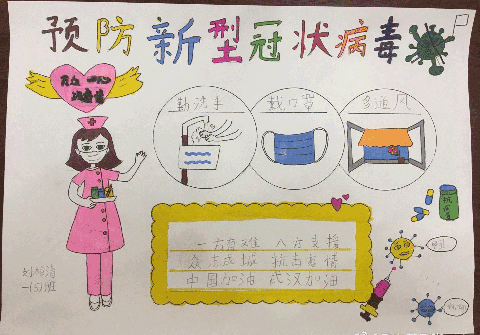 预防新型冠状病毒
勤洗手
戴口罩
多通风
一方有难 八方支援
众志成城 抗击疫情
中国加油 武汉加油